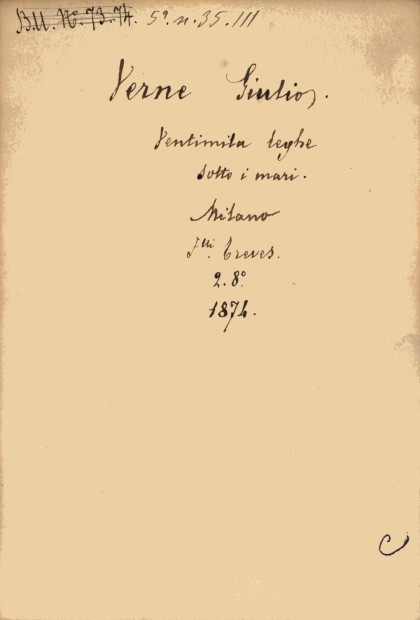 B.U. Nº 73.74. 5ª.n.35.III
Verne Giulio.
Ventimila leghe
sotto i mari.
Milano
F.lli Treves.
2.8º
1874.
C